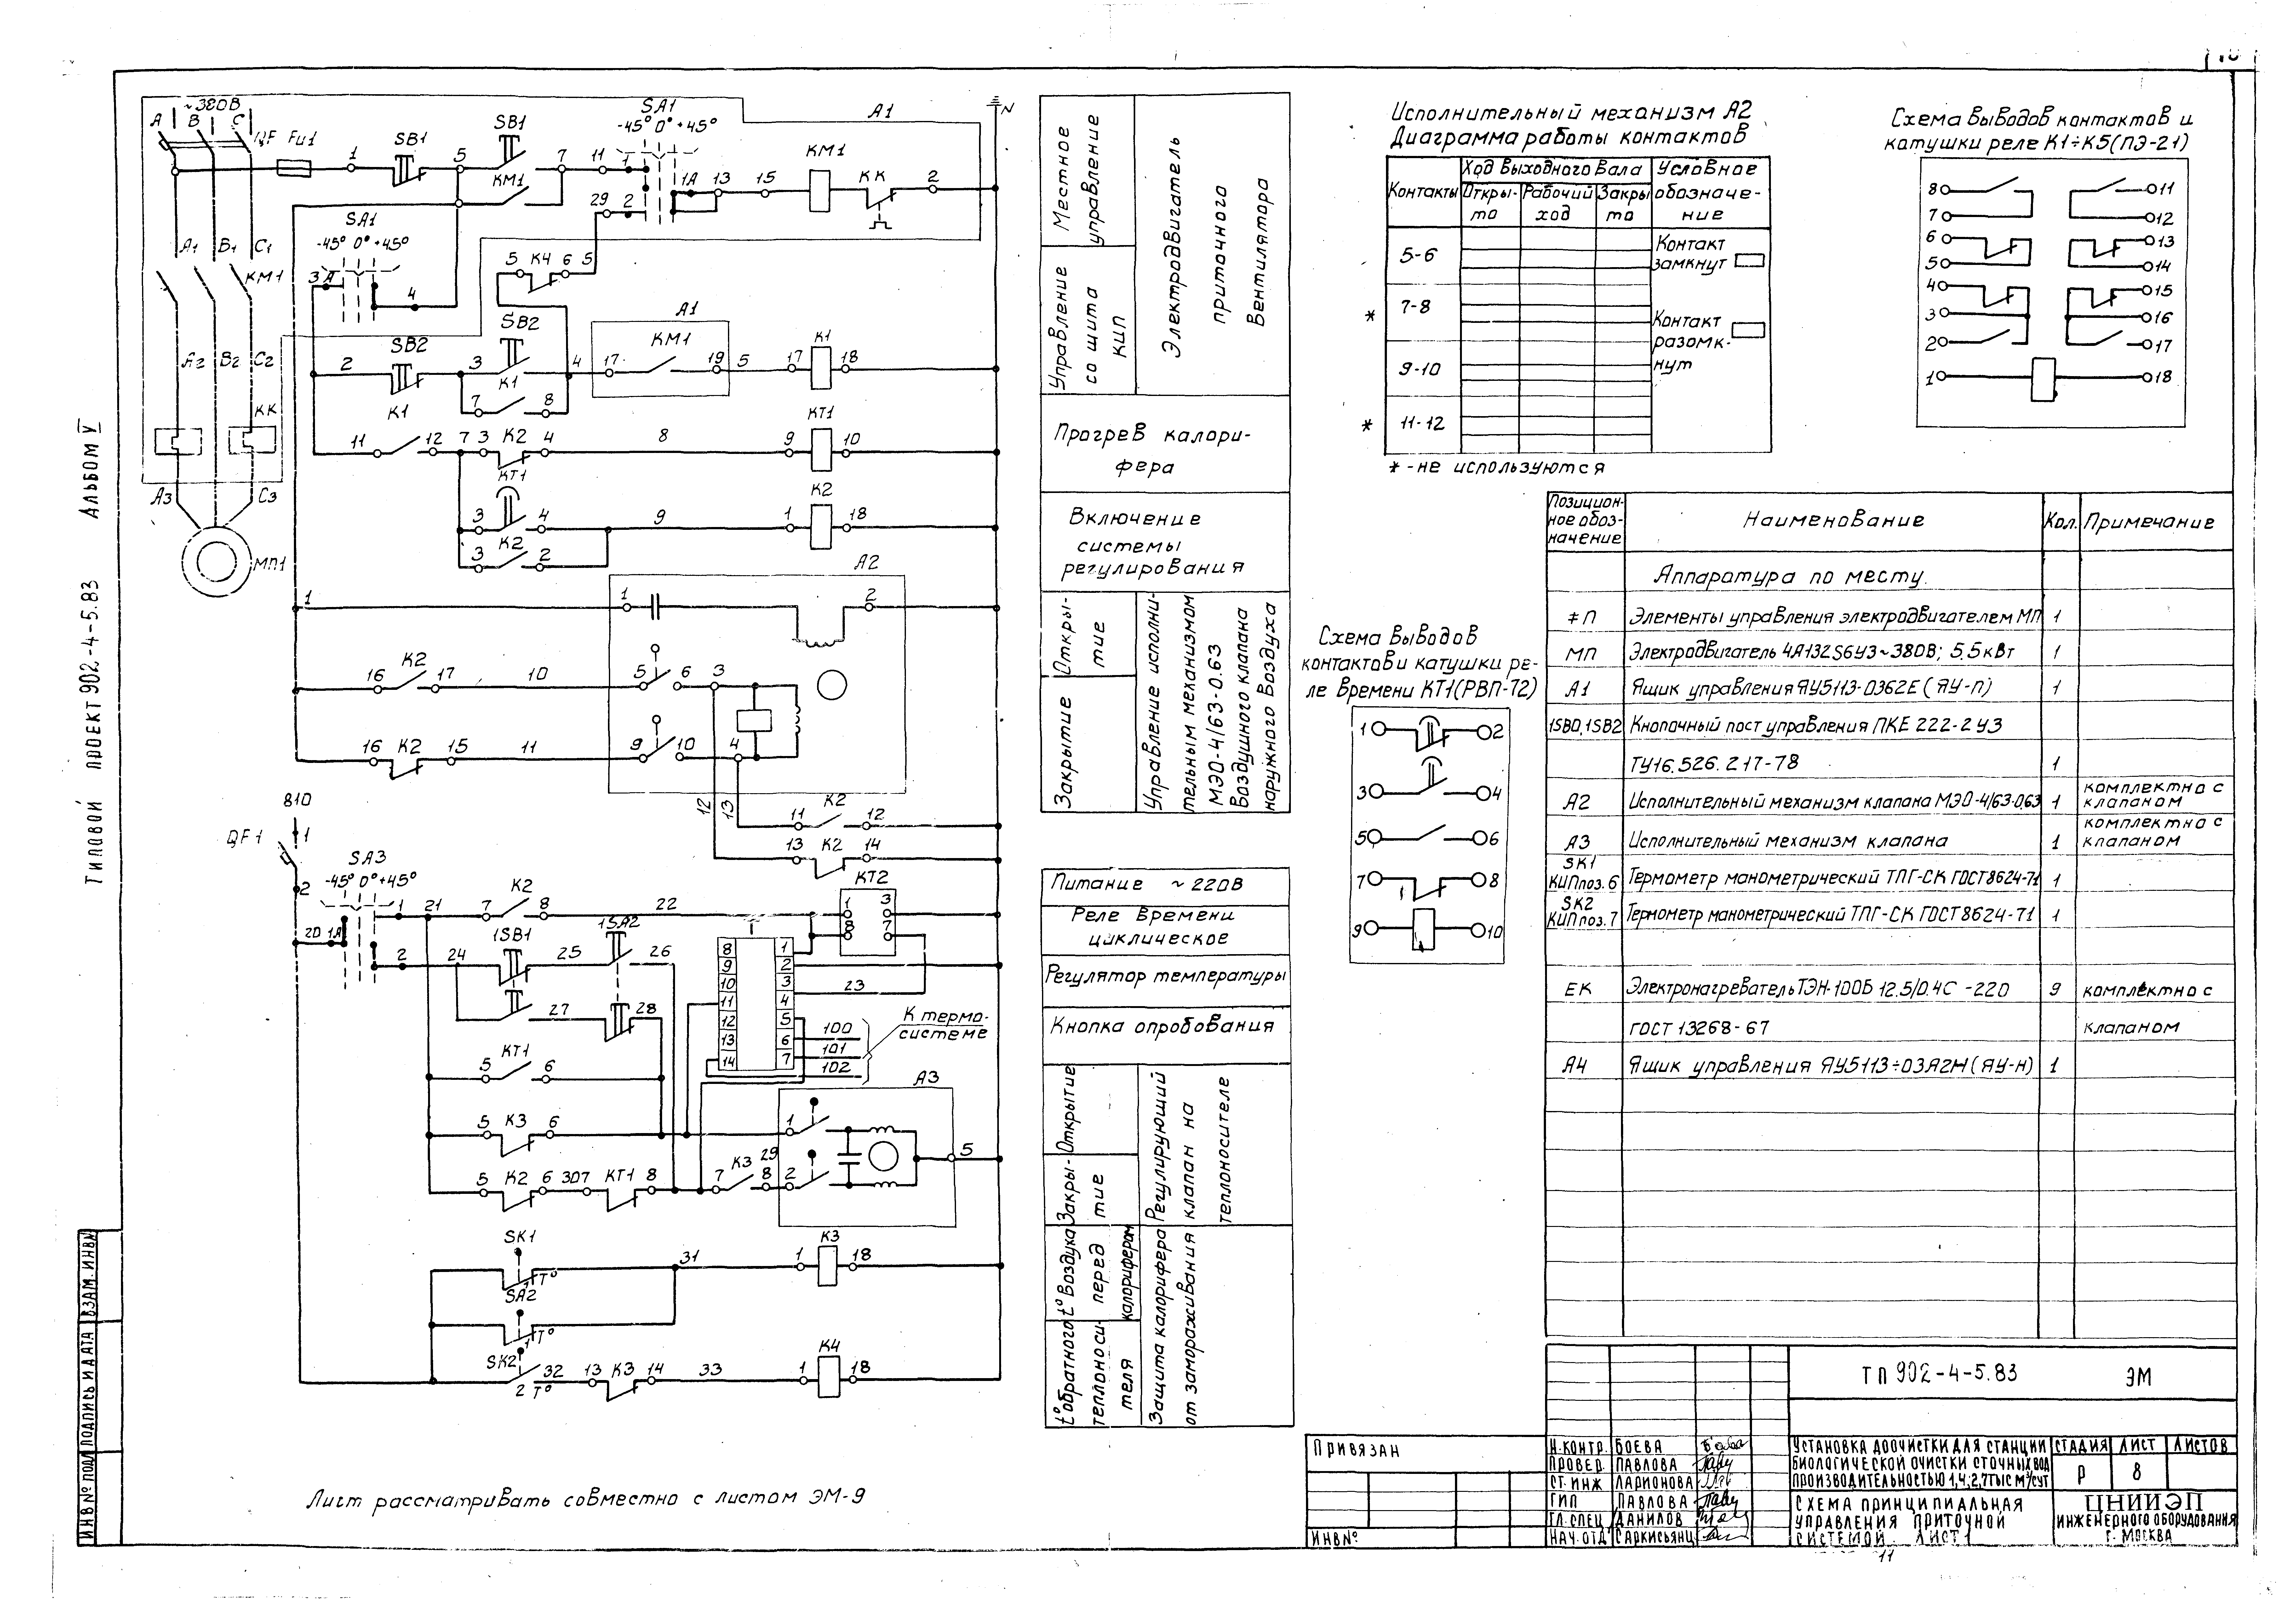 Типовой проект 902-4-5.83 Альбом V
ИНВ № ПОДЛ
ПОДПИСЬ И ДАТА
ВЗАМ. ИНВ №
~380В
А В С
QF Fu1
1
SB1
5
SB1
7
11
1
SA1
-45° 0° +45°
А1
1А 13 15
КМ1
КК
2
N
КМ1
29 2
SA1
-45° 0° +45°
3 А
4
А1 В1 С1
КМ1
5 К4 6 5
А1
SB2
SB2
2
3
4
17 КМ1 19 5 17 К1 18
К1
7 8
А2 В2 С2
КК
К1
11 12 7 3 К2 4 8 9 КТ1 10
КТ1
3 4 9 1 К2 18
К2
3 2
А3 С3
МП1
А2
1 1 2
16 К2 17 10 5 6 3
16 К2 15 11 9 10 4
12 13
11 К2 12
13 К2 14
810
1
QF1
2
SA3
-45° 0° +45°
20 1А
1 21
2
7 К2 8 22
КТ2
1 3
8 7
24 1SB1 25 1SA2 26
27 28
8 1
9 2
10 3
11 4
12 5
13 6
14 7
23
100
101
102
К термо-
системе
5 КТ1 6
А3
5 К3 6 1
5
5 К2 6 307 КТ1 8 7 К3 8 29 2
SK1
1 Т°
31 1 К3 18
SA2
1 Т°
SK2
2 Т°
32 13 К3 14 33 1 К4 18
Лист рассматривать совместно с листом ЭМ-9
Местное
управление
Управление
со щита
КИП
Электродвигатель
приточного
вентилятора
Прогрев калори-
фера
Включение
системы
регулирования
Откры-
тие
Закрытие
Управление исполни-
тельным механизмом
МЭО-4/63-0.63
Воздушного клапана
наружного воздуха
Питание ~220В
Реле времени
циклическое
Регулятор температуры
Кнопка опробования
Открытие
Закры-
тие
Регулирующий
клапан на
теплоносителе
t° воздуха
перед
калорифером
t° обратного
теплоноси-
теля
Защита калорифера
от замораживания
Исполнительный механизм А2
Диаграмма работы контактов
Контакты
Ход выходного вала
Откры-
то
Рабочий
ход
Закры
то
Условное
обозначе-
ние
5-6
* 7-8
9-10
* 11-12
Контакт
замкнут
Контакт
разомк-
нут
* - не используются
Схема выводов контактов и
катушки реле К1÷К5 (ПЭ-21)
8 11
7 12
6 13
5 14
4 15
3 16
2 17
1 18
Схема выводов
контактов и катушки ре-
ле времени КТ1 (РВП-72)
1 2
3 4
5 6
7 8
9 10
Позицион-
ное обоз-
начение
Наименование
Кол.
Примечание
Аппаратура по месту.
‡П Элементы управления электродвигателем МП 1
МП Электродвигатель 4А132S6У3 ~380В; 5.5кВт 1
А1 Ящик управления ЯУ5113-0362Е (ЯУ-П) 1
1SB0, 1SB2 Кнопочный пост управления ПКЕ 222-2 У3
ТУ16.526.217-78 1
А2 Исполнительный механизм клапана МЭО-4/63-0.63 1 комплектно с клапаном
А3 Исполнительный механизм клапана 1 комплектно с клапаном
SK1 КИП поз. 6 Термометр манометрический ТПГ-СК ГОСТ 8624-71 1
SK2 КИП поз. 7 Термометр манометрический ТПГ-СК ГОСТ 8624-71 1
ЕК Электронагреватель ТЭН-100Б 12.5/0.4С -220 9 комплектно с
ГОСТ 13268-67 клапаном
А4 Ящик управления ЯУ5113÷03А2М (ЯУ-Н) 1
ТП 902-4-5.83 ЭМ
Привязан
ИНВ №
Н.КОНТР. БОЕВА
ПРОВЕР. ПАВЛОВА
СТ. ИНЖ ЛАРИОНОВА
ГИП ПАВЛОВА
ГЛ. СПЕЦ ДАНИЛОВ
НАЧ. ОТД САРКИСЬЯНЦ
УСТАНОВКА ДООЧИСТКИ ДЛЯ СТАНЦИИ
БИОЛОГИЧЕСКОЙ ОЧИСТКИ СТОЧНЫХ ВОД
ПРОИЗВОДИТЕЛЬНОСТЬЮ 1,4; 2,7 ТЫС М³/СУТ
СТАДИЯ ЛИСТ ЛИСТОВ
Р 8
СХЕМА ПРИНЦИПИАЛЬНАЯ
УПРАВЛЕНИЯ ПРИТОЧНОЙ
СИСТЕМОЙ ЛИСТ 1
ЦНИИЭП
ИНЖЕНЕРНОГО ОБОРУДОВАНИЯ
Г. МОСКВА
11